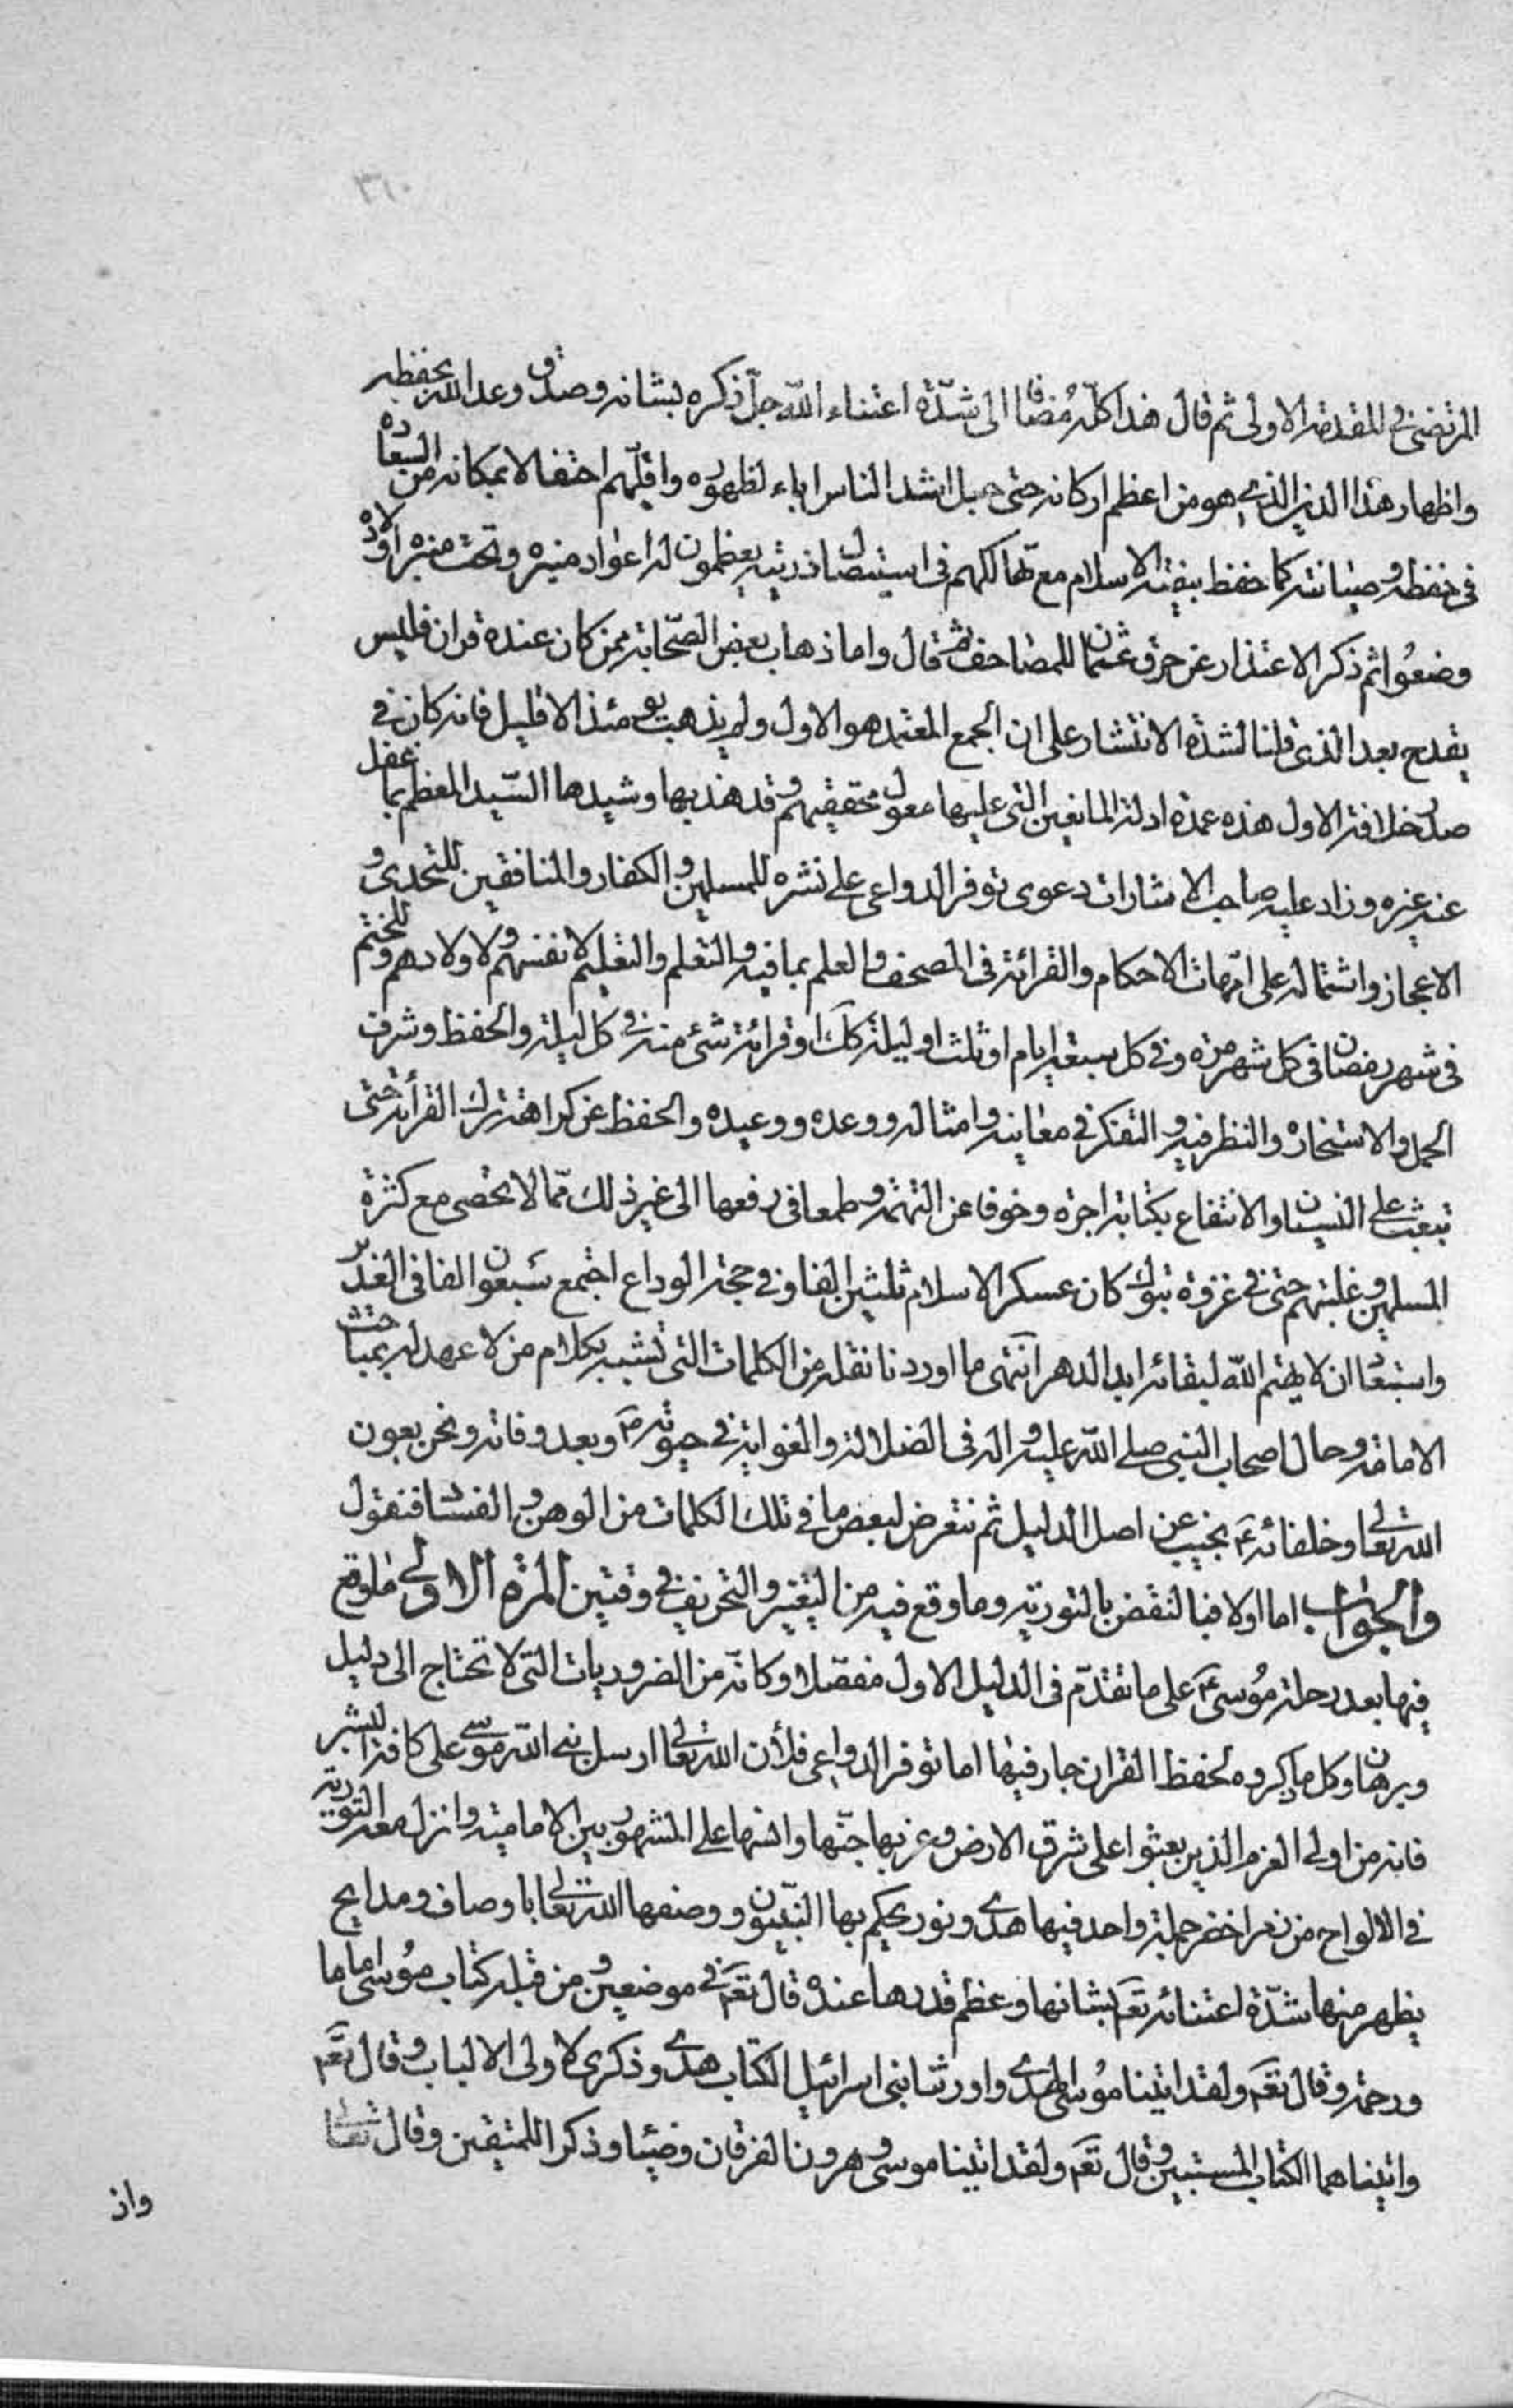 ٣٦٠
المرتضى في المقدمة الاولى ثم قال هذا كله مُضافا الى شدّة اعتناء الله جلّ ذكره بشانه وصدق وعد الله بحفظه
واظهار هذا الدين الذي هو من اعظم اركانه حتى جبل اشد الناس اباء لظهوره واقلّهم احتفالا بمكانه من السعادة
في حفظه وصيانته كما حفظ بيضة الاسلام مع تهالكهم في استيصال ذريته يعظمون له اعواد منبره وتحت منبره اولاده
وضعُوا ثم ذكر الاعتذار عن حرق عثمان للمصاحف ثم قال واما ذهاب بعض الصّحابة ممن كان عنده قران فليس
يقدح بعد الذي قلنا لشدة الانتشار على ان الجمع المعتمد هو الاول ولم يذهب يومئذ الا قليل فانه كان في
صدر خلافة الاول هذه عمدة ادلة المانعين التي عليها معول محققيهم وقد هذبها وشيدها السّيد المعظم بما غفل
عنه غيره وزاد عليه صاحب الاشارات دعوى توفر الدواعى على نشره للمسلمين والكفار والمنافقين للتحدى و
الاعجاز واشتماله على امّهات الاحكام والقرائة في المصحف والعلم بما فيه والتعلم والتعليم لانفسهم ولاولادهم وللختم
في شهر رمضان في كل شهر مرة وفي كل سبعة ايام او ثلث او ليلة كلّا او قرائة شئ منه في كل ليلة والحفظ وشرف
الحمل والاستخارة والنظر فيه والتفكر في معانيه وامثاله ووعده ووعيده والحفظ عن كراهة ترك القرأئة حتى
تبعث على النسيان او الانتفاع بكتابة اجرة وخوفا عن التهمة وطمعا في رفعها الى غير ذلك ممّا لا يحصى مع كثرة
المسلمين وغلبتهم حتى في غزوة تبوك كان عسكر الاسلام ثلثين الفا وفي حجة الوداع اجتمع سَبعون الفا في الغدير
واستبعاد ان لا يهتم الله لبقائه ابد الدهر انتهى ما اوردنا نقله من الكلمات التي تشبه بكلام من لا عهد له بمباحث
الامامة وحال اصحاب النبي صلى الله عليه واله في الضلالة والغواية في حيوته صَ وبعد وفاته ونحن بعون
الله تعالى وخلفائه عَ نجيب عن اصل الدليل ثم نتعرض لبعض ما في تلك الكلمات من الوهن والفساد فنقول
والجواب اما اولا فبالنقض بالتورية وما وقع فيه من التغيير والتحريف في وقتين المرة الاولى ما وقع
فيها بعد رحلة مُوسى عَ على ما تقدّم في الدليل الاول مفصّلا وكانّه من الضروريات التي لا تحتاج الى دليل
وبرهان وكل ما ذكروه لحفظ القران جار فيها اما توفر الدواعى فلأن الله تعالى ارسل نبي الله موسى على كافة البشر
فانه من اولى العزم الذين بعثوا على شرق الارض وغربها جنّها وانسها على المشهور بين الامامية وانزل معه التورية
في الالواح من زمرد اخضر جملة واحد فيها هدى ونور يحكم بها النبّيون ووصفها الله تعالى باوصاف ومدايح
يظهر منها شدّة اعتنائه تعَ بشانها وعظم قدرها عنده قال تعَ في موضعين ومن قبله كتاب مُوسى اماما
ورحمة وقال تعَ ولقد اتينا مُوسى الهدى واورثنا بنى اسرائيل الكتاب هدى وذكرى لاولى الالباب وقال تعَ
واتيناهما الكتاب المستبين وقال تعَ ولقد اتينا موسى وهرون الفرقان وضيئا وذكرا للمتقين وقال تعالى
واذ